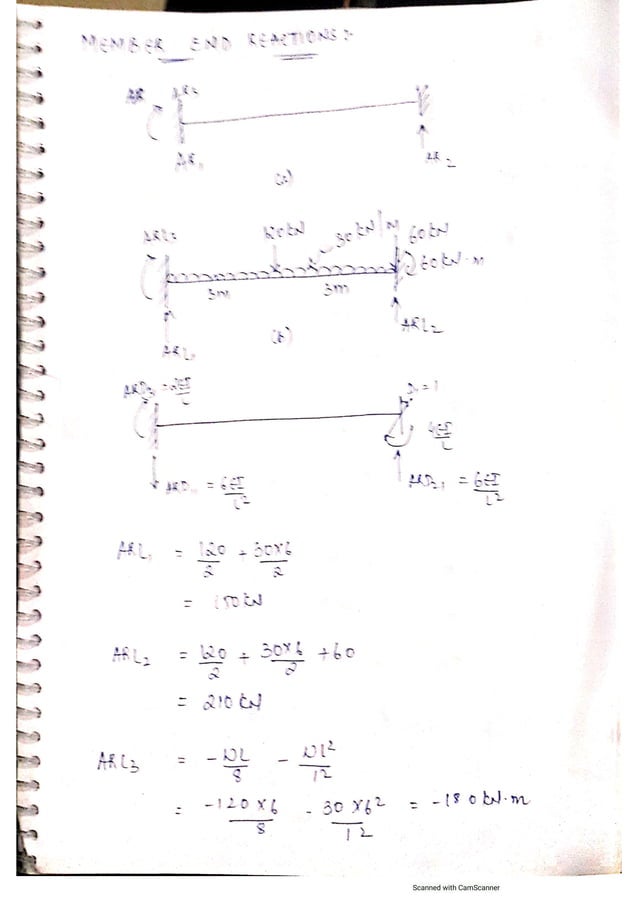 MEMBER END REACTIONS:-
AR AR3
AR1 AR2
(a)
ARL3 120KN 30KN/M 60KN
60KN.m
3m 3m
ARL1 (b) ARL2
= 2EI/L D1 = 1
4EI/L
ARD11 = 6EI/L2 ARD21 = 6EI/L2
ARL1 = 120/2 + 30×6/2
= 150KN
ARL2 = 120/2 + 30×6/2 + 60
= 210KN
ARL3 = -WL/8 - Wl2/12
= -120×6/8 - 30×62/12 = -180KN.m
Scanned with CamScanner